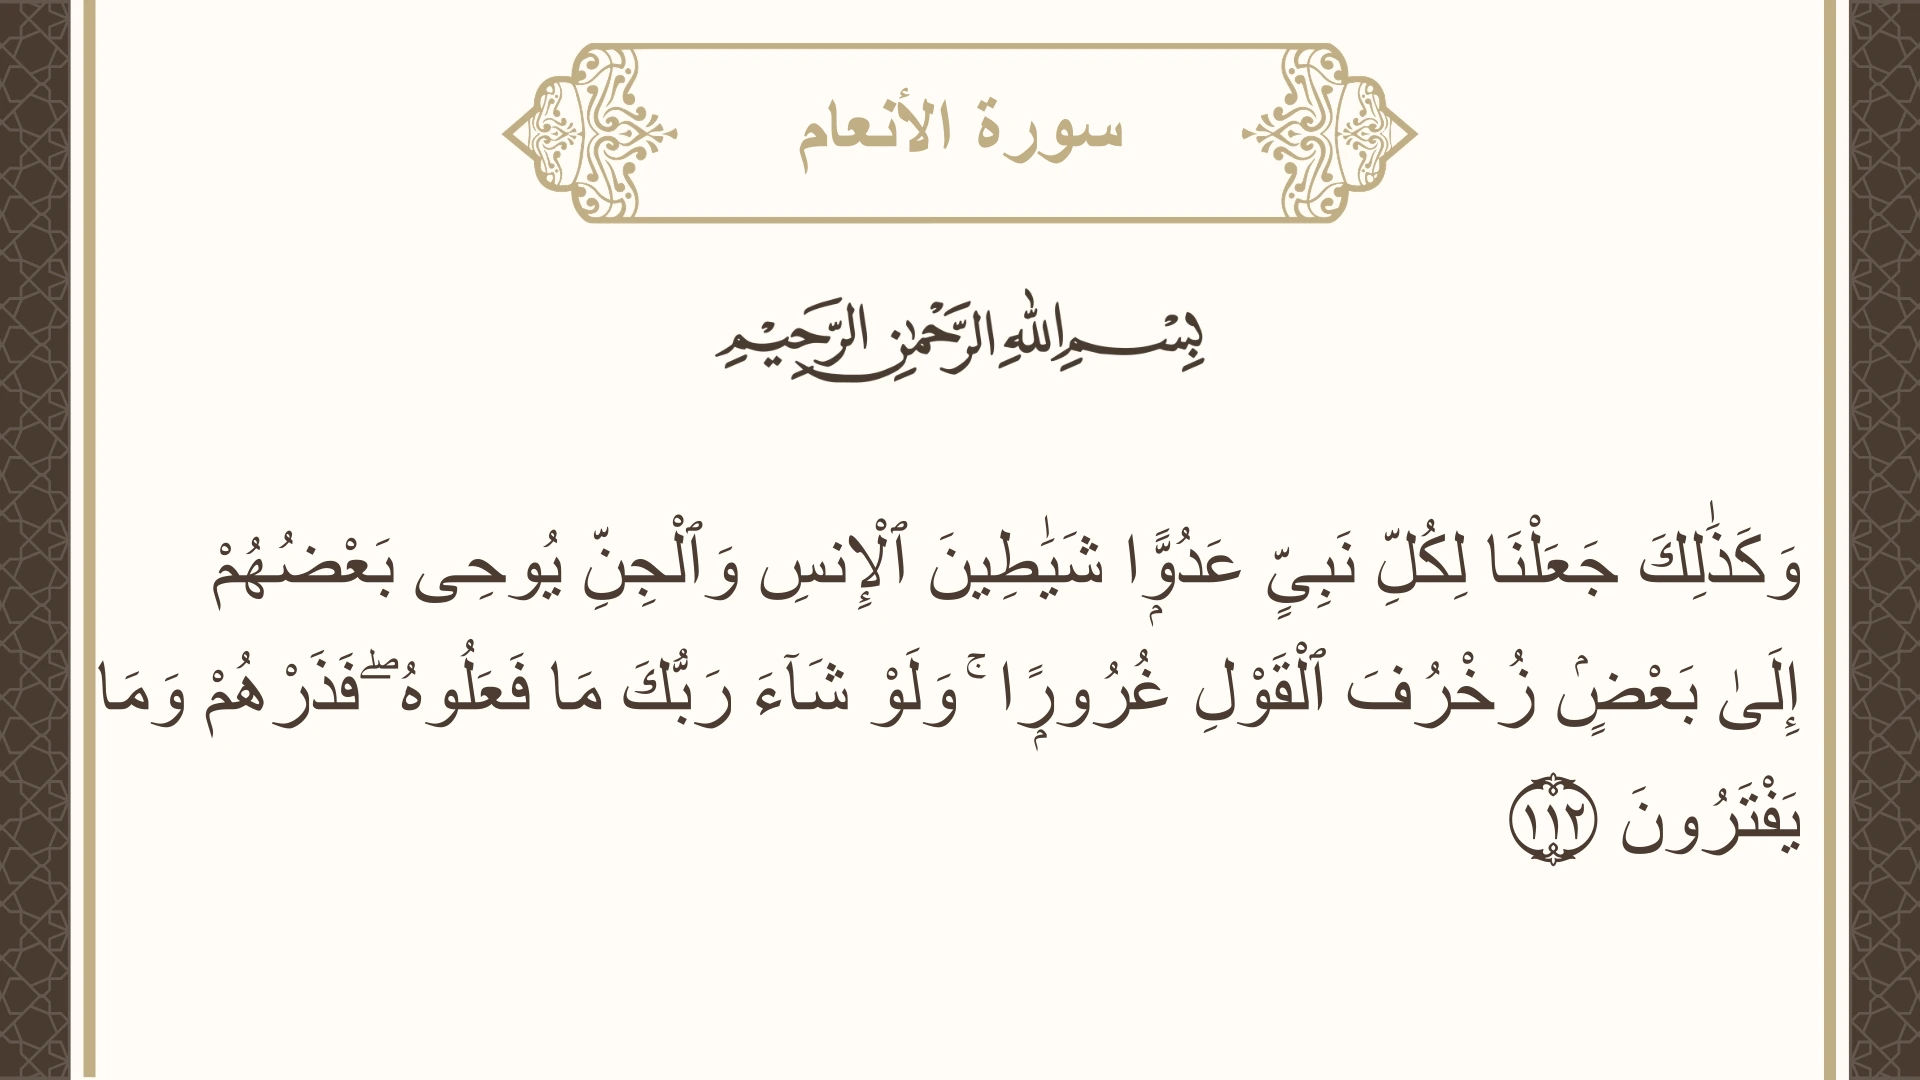 سورة الأنعام
بِسْمِ اللهِ الرَّحْمٰنِ الرَّحِيْمِ
وَكَذَٰلِكَ جَعَلْنَا لِكُلِّ نَبِىٍّ عَدُوًّۭا شَيَـٰطِينَ ٱلْإِنسِ وَٱلْجِنِّ يُوحِى بَعْضُهُمْ
إِلَىٰ بَعْضٍۢ زُخْرُفَ ٱلْقَوْلِ غُرُورًۭا ۚ وَلَوْ شَآءَ رَبُّكَ مَا فَعَلُوهُ ۖ فَذَرْهُمْ وَمَا
يَفْتَرُونَ ١١٢